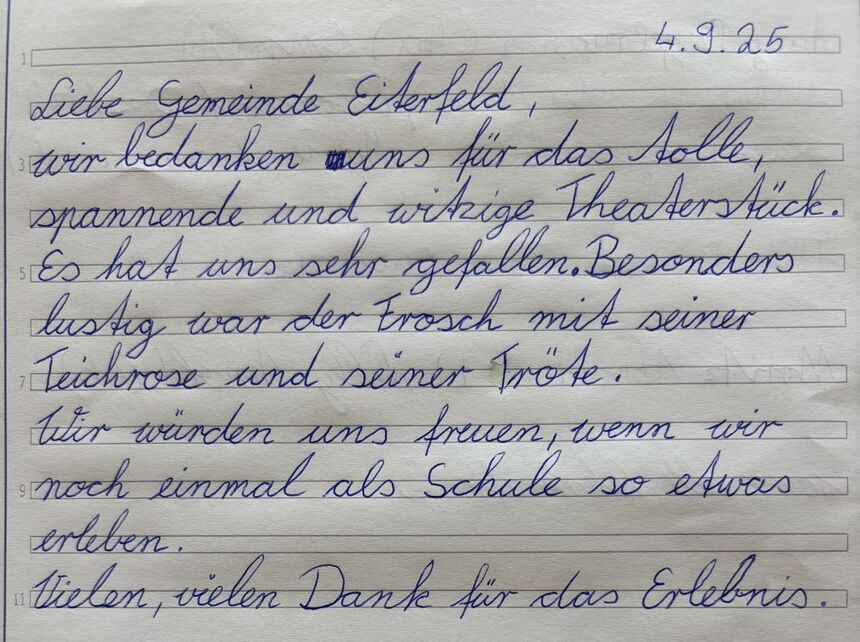 4.9.25
Liebe Gemeinde Eiterfeld,
wir bedanken uns für das tolle,
spannende und witzige Theaterstück.
Es hat uns sehr gefallen. Besonders
lustig war der Frosch mit seiner
Teichrose und seiner Tröte.
Wir würden uns freuen, wenn wir
noch einmal als Schule so etwas
erleben.
Vielen, vielen Dank für das Erlebnis.